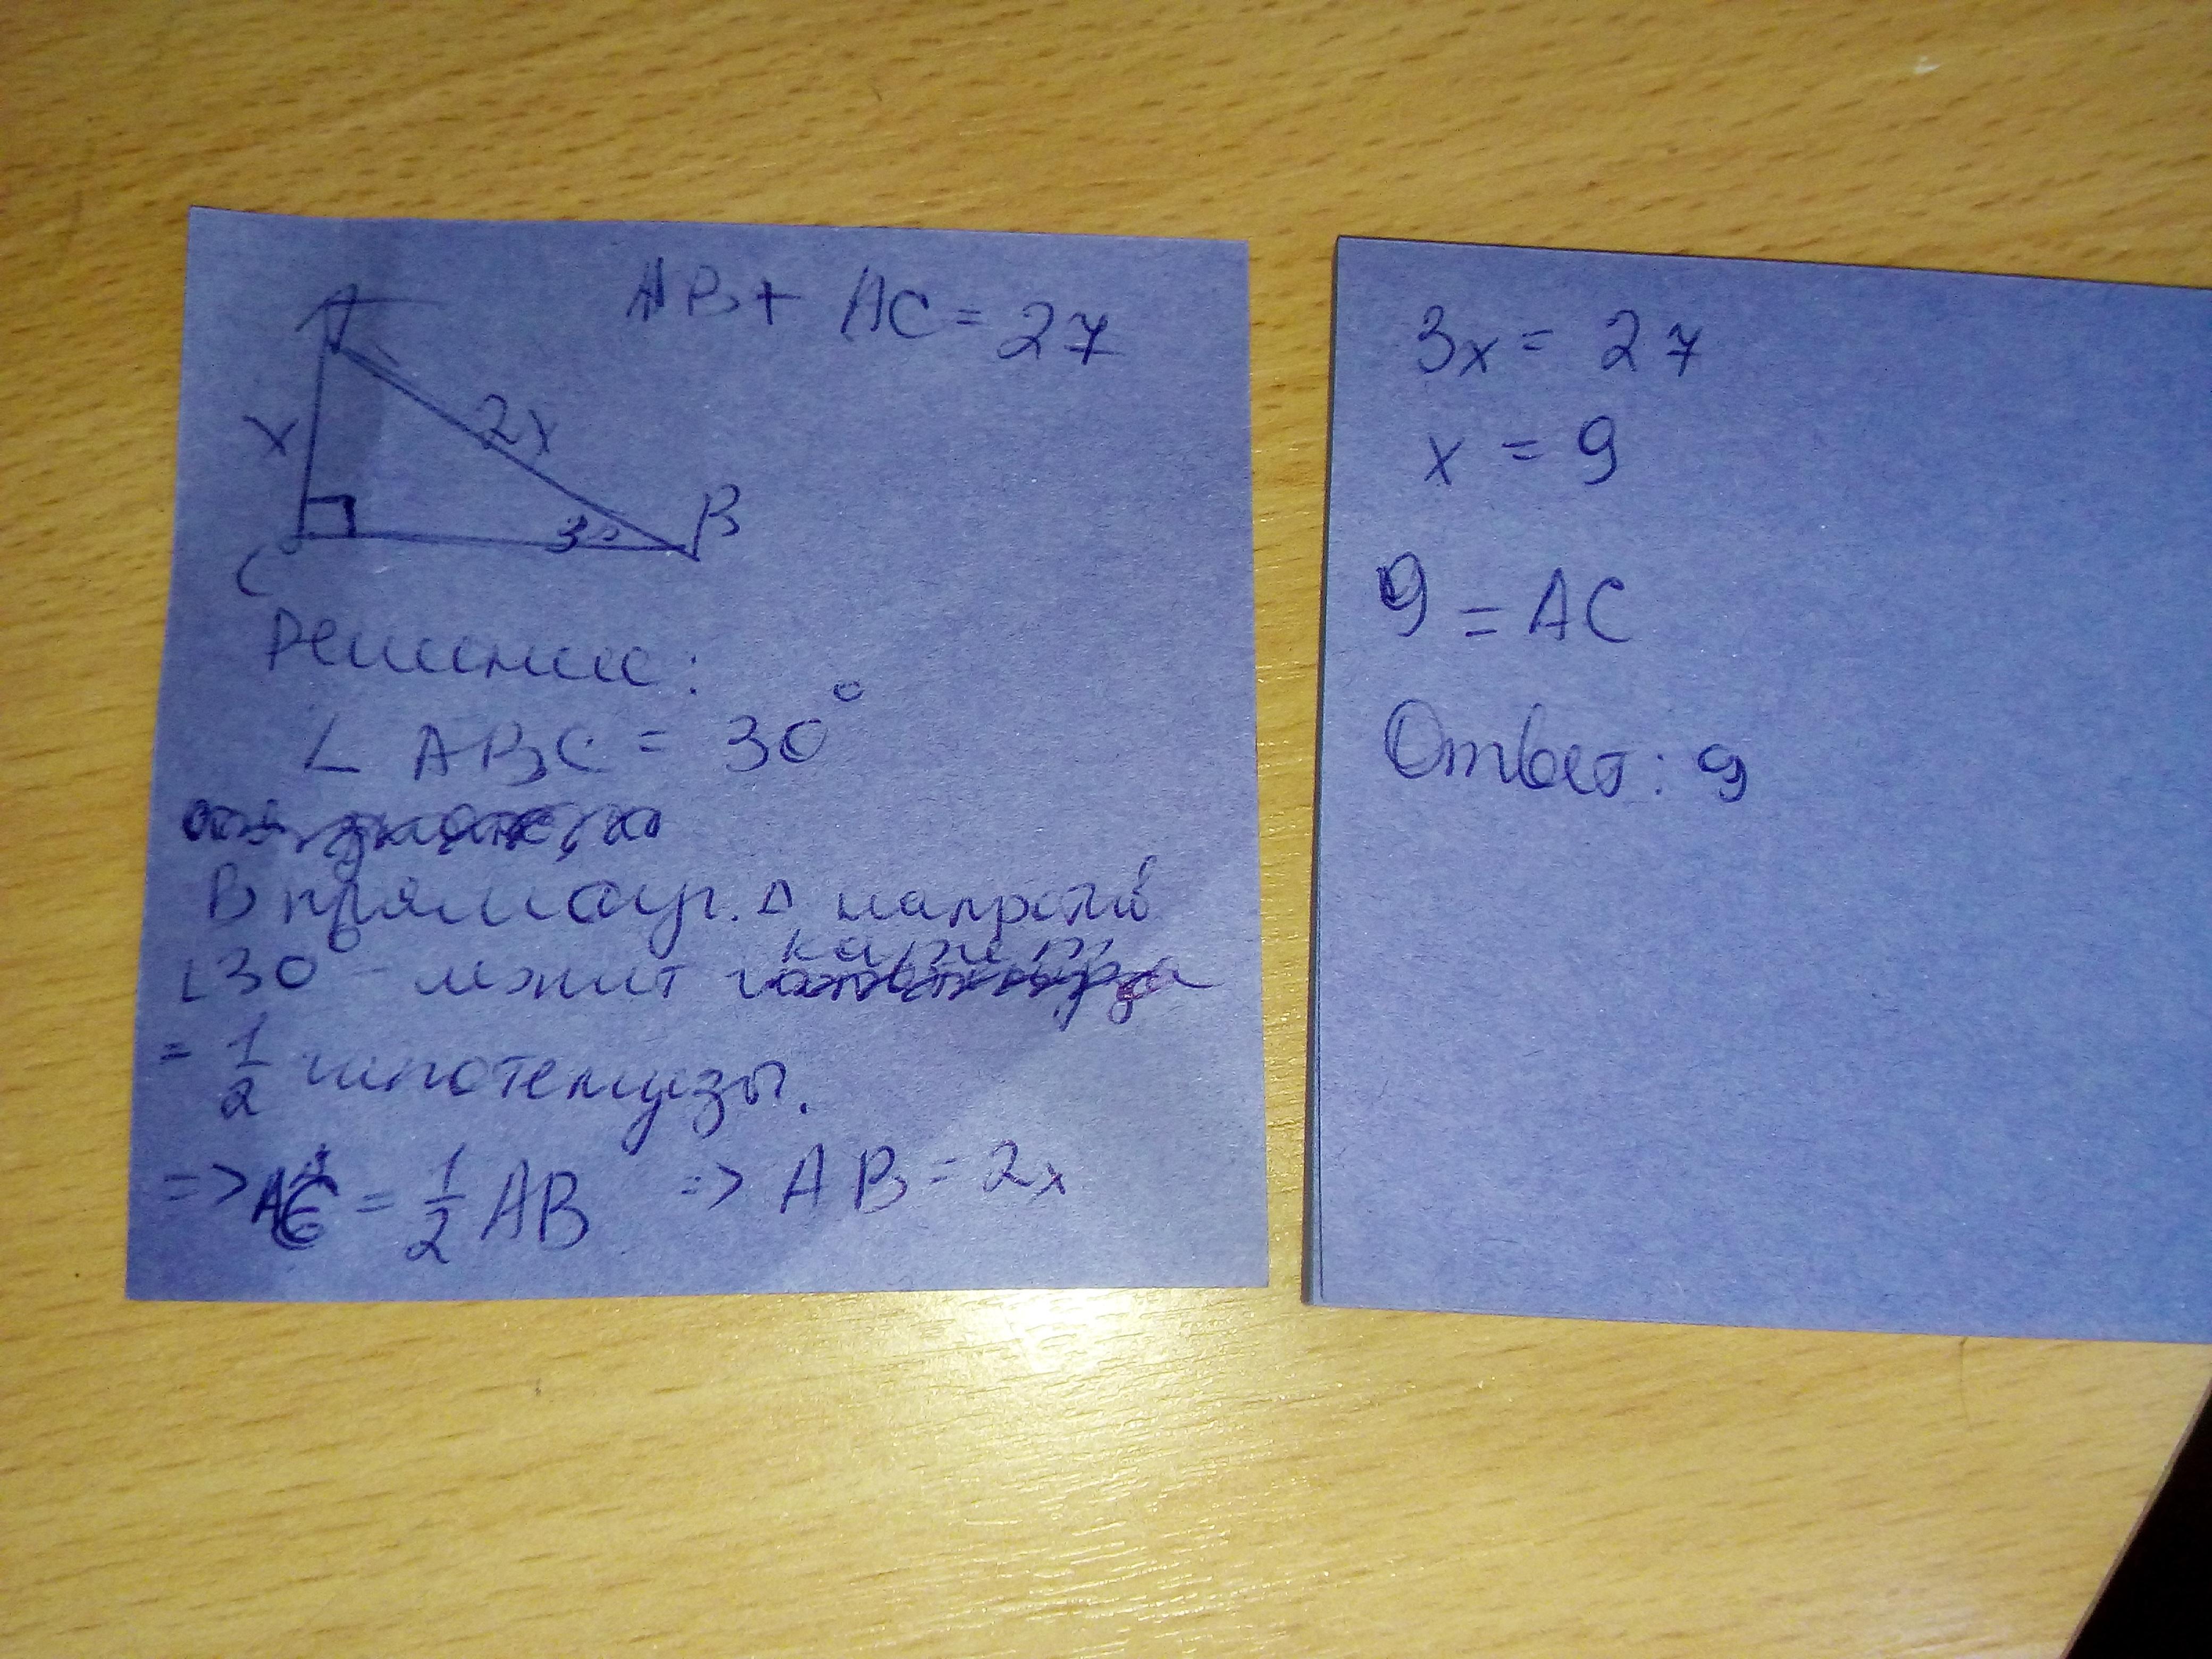 AB + AC = 27
A
x
2x
30
B
C
Решение:
∠ ABC = 30°
В прямоуг. Δ напротив
∠30° лежит катет
= 1/2 гипотенузы.
=> AC = 1/2 AB => AB = 2x
3x = 27
x = 9
9 = AC
Ответ: 9